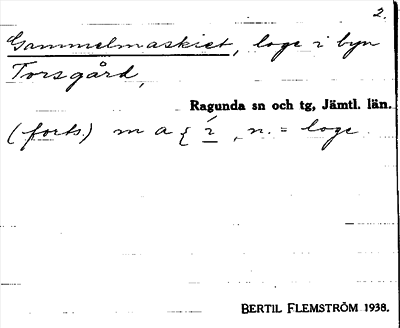 2.
Gammelmaskiet, loge i byn
Torsgård,
Ragunda sn och tg, Jämtl. län.
(forts.) m a , n. = loge
BERTIL FLEMSTRÖM 1938.